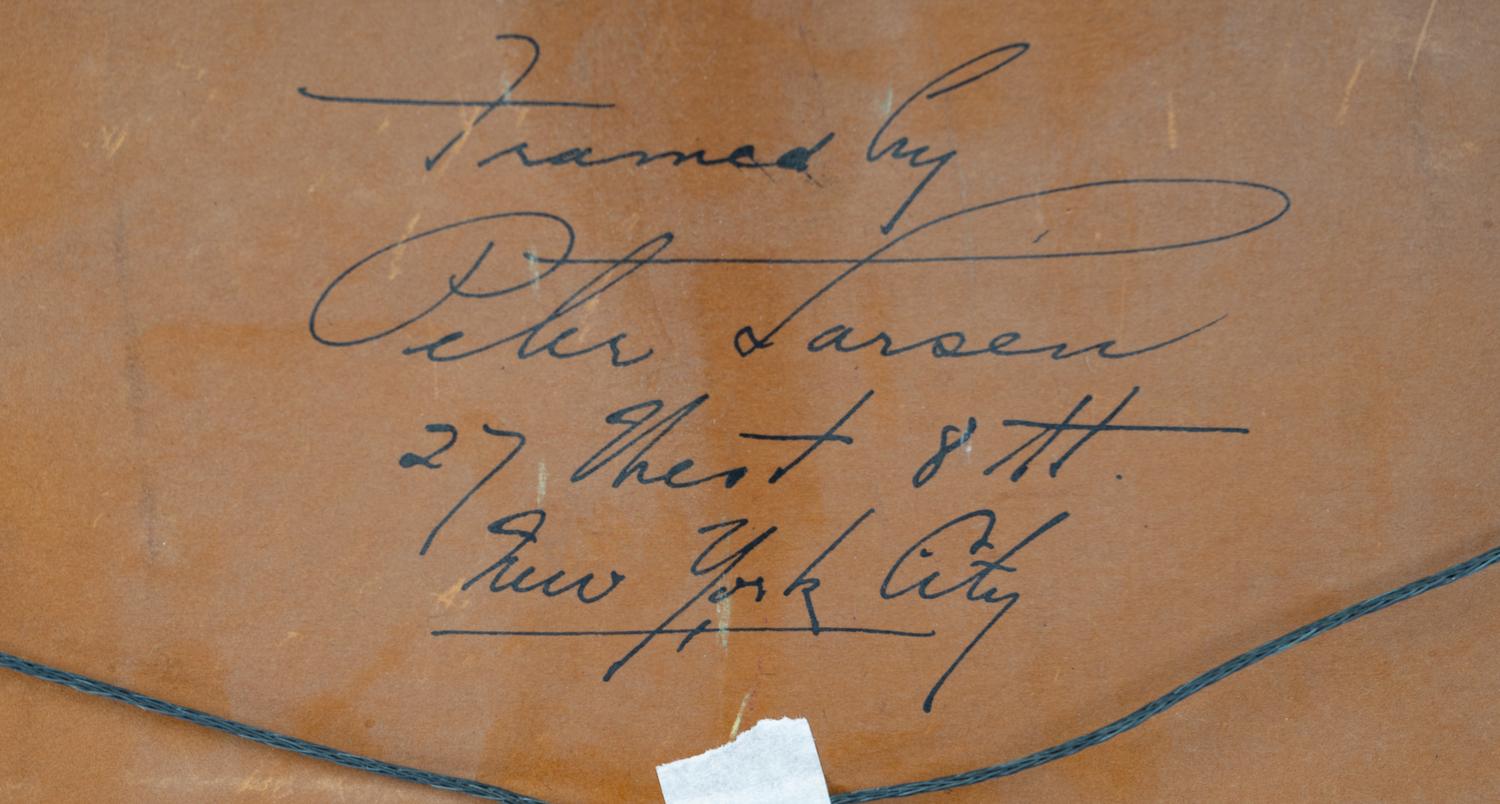 Framed by
Peter Larsen
27 West 8 St.
New York City